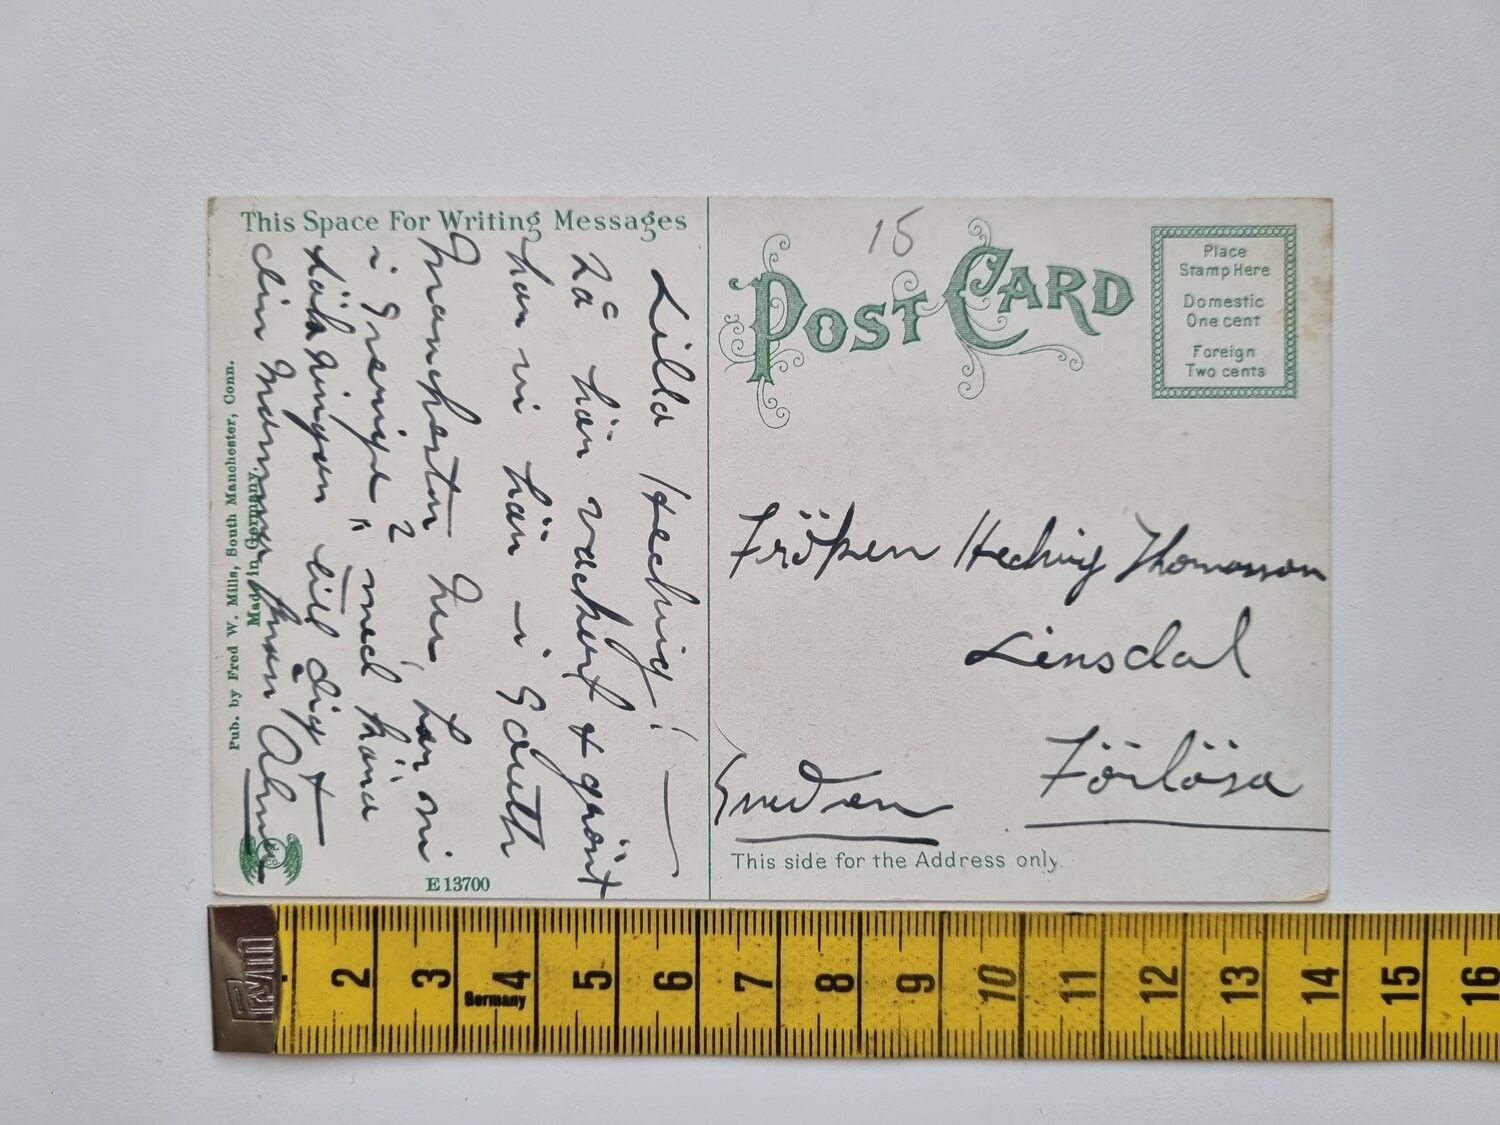 This Space For Writing Messages
Lilla Hedvig! —
Så här vackert & grönt
har vi här i South
Manchester nu, har ni
i Sverige? med kära
hälsningar till dig &
din Mamma från
Pub. by Fred W. Mills, South Manchester, Conn.
Made in Germany.
E 13700
15
POST CARD
Place
Stamp Here
Domestic
One cent
Foreign
Two cents
Fröken Hedvig Thomasson
Linsdal
Förlösa
Sweden
This side for the Address only.
Germany
2 3 4 5 6 7 8 9 10 11 12 13 14 15 16